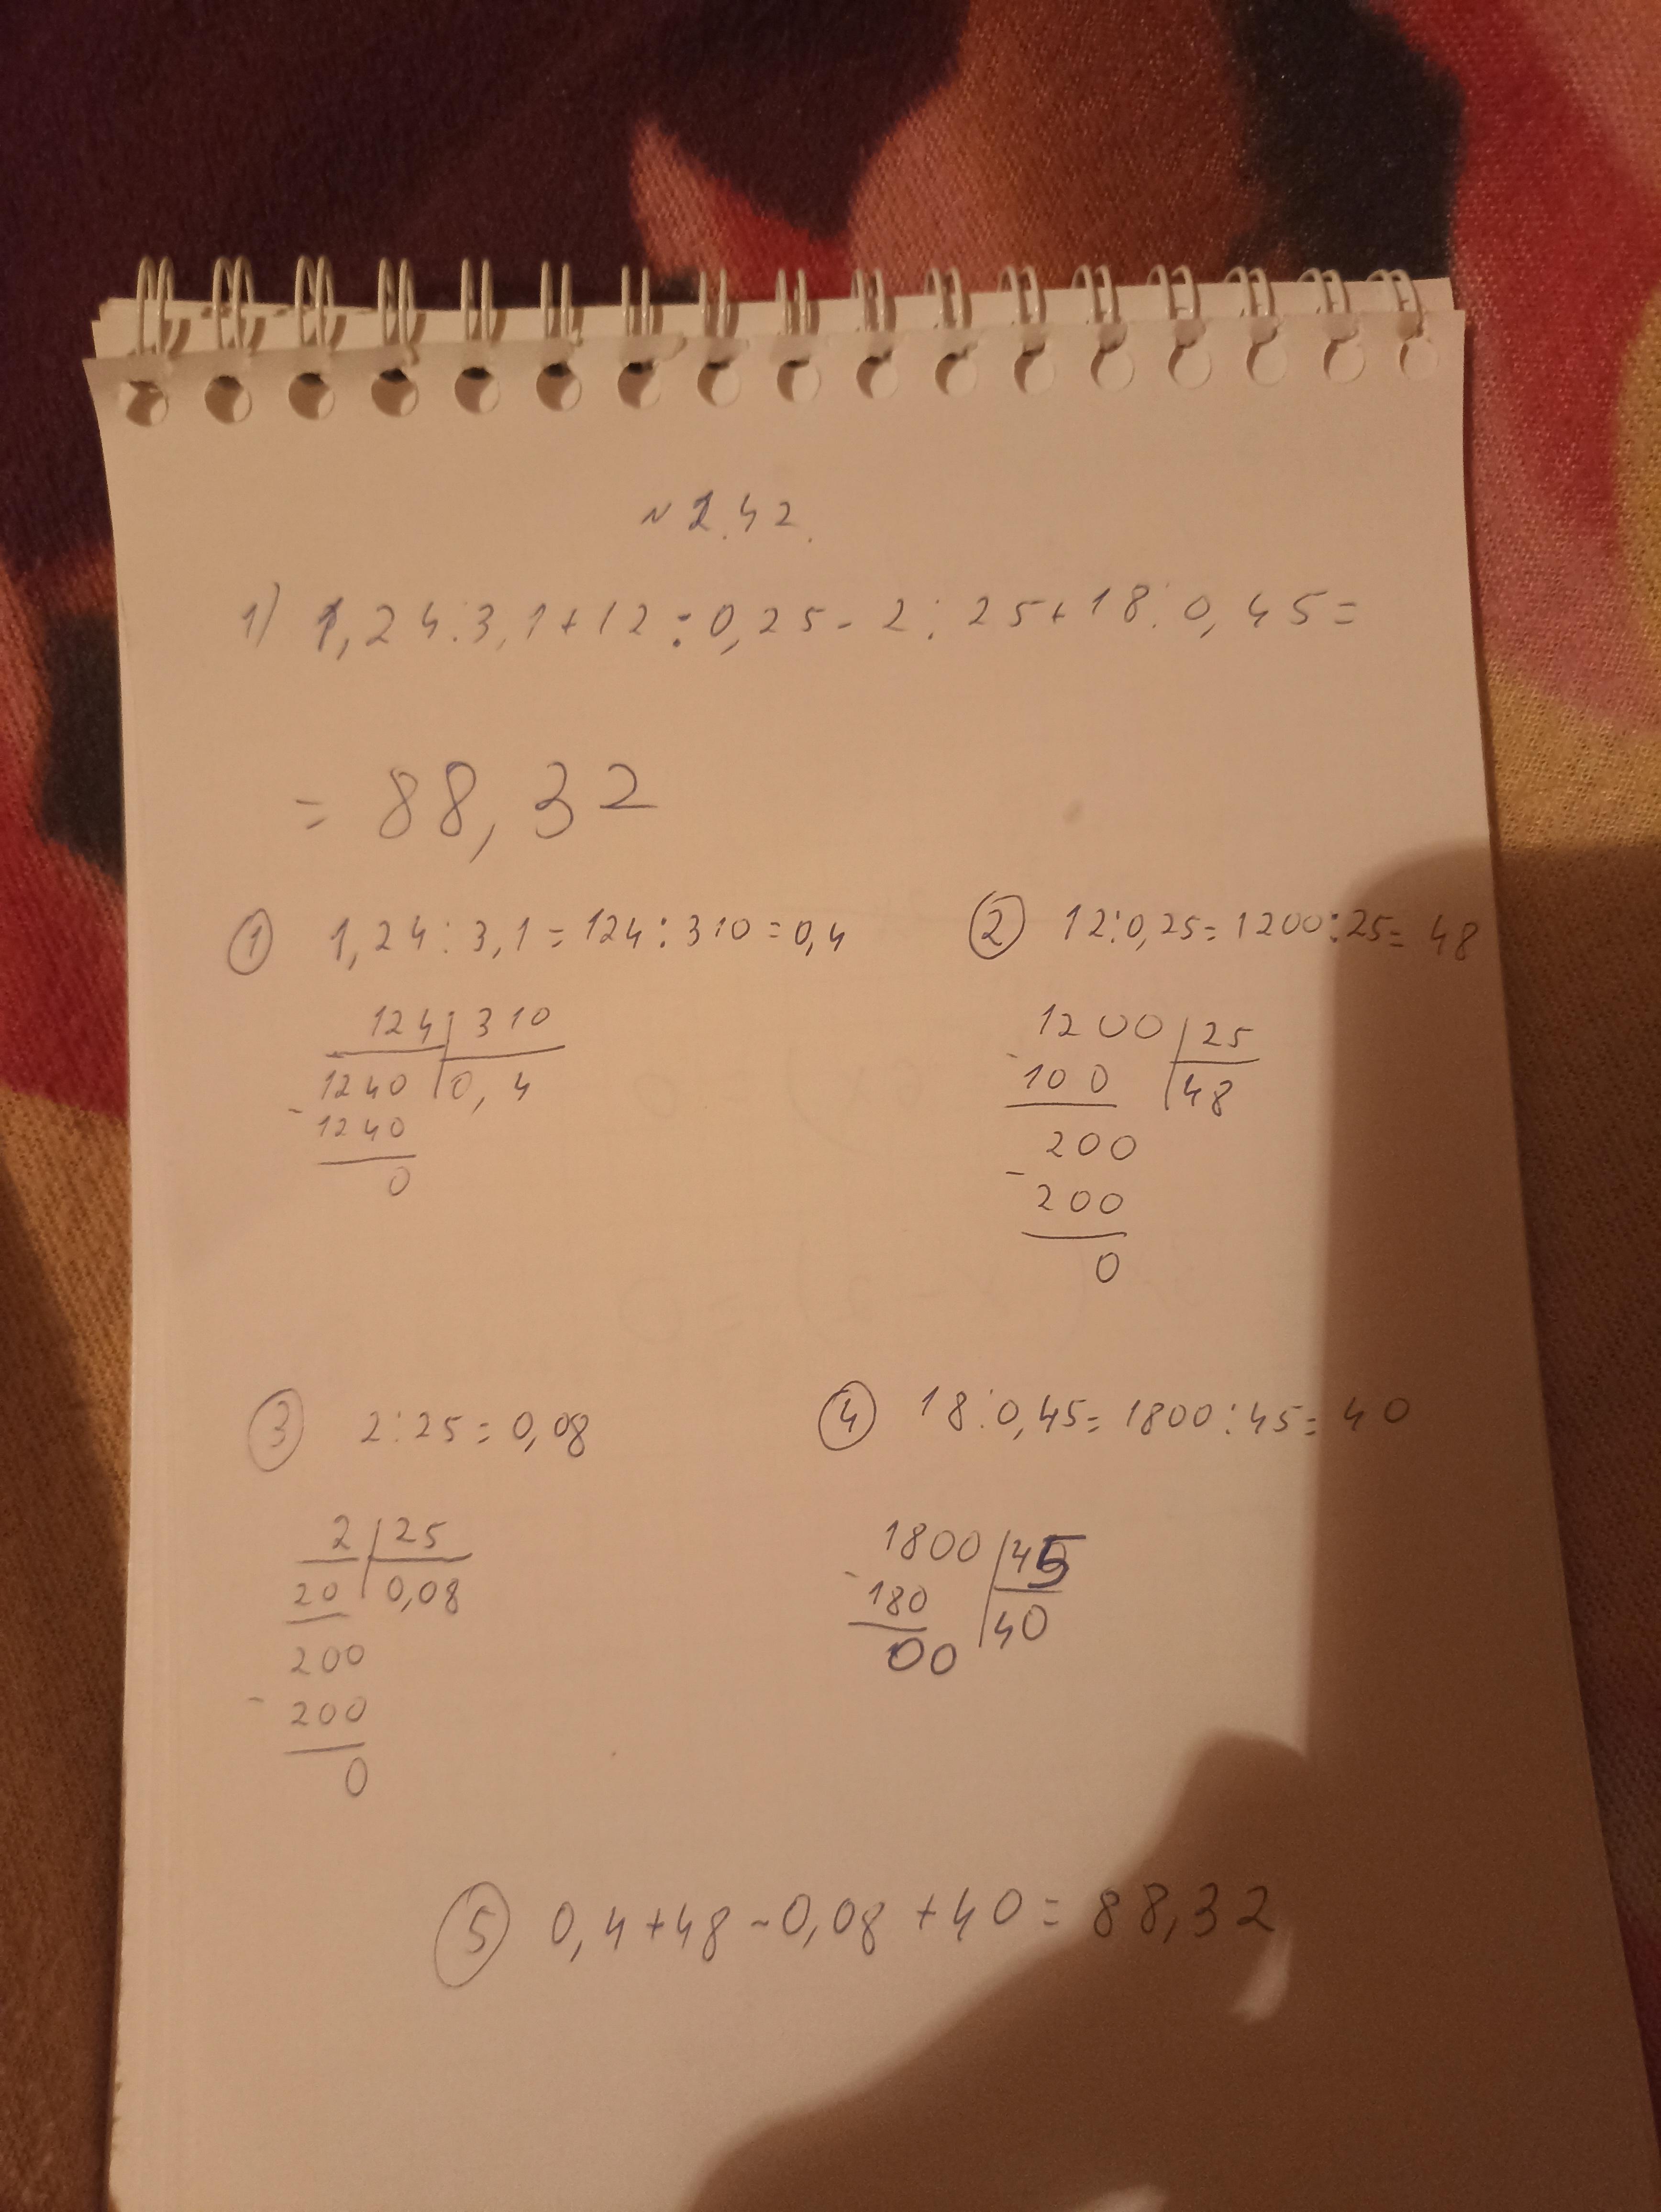 № 1.42.
1) 1,24:3,1+12:0,25-2:25+18:0,45=
= 88,32
① 1,24:3,1=124:310=0,4
124 310
1240 0,4
- 1240
0
② 12:0,25=1200:25=48
1200 25
- 100 48
200
- 200
0
③ 2:25=0,08
2 25
20 0,08
200
- 200
0
④ 18:0,45=1800:45=40
1800 45
- 180 40
00
⑤ 0,4+48-0,08+40=88,32